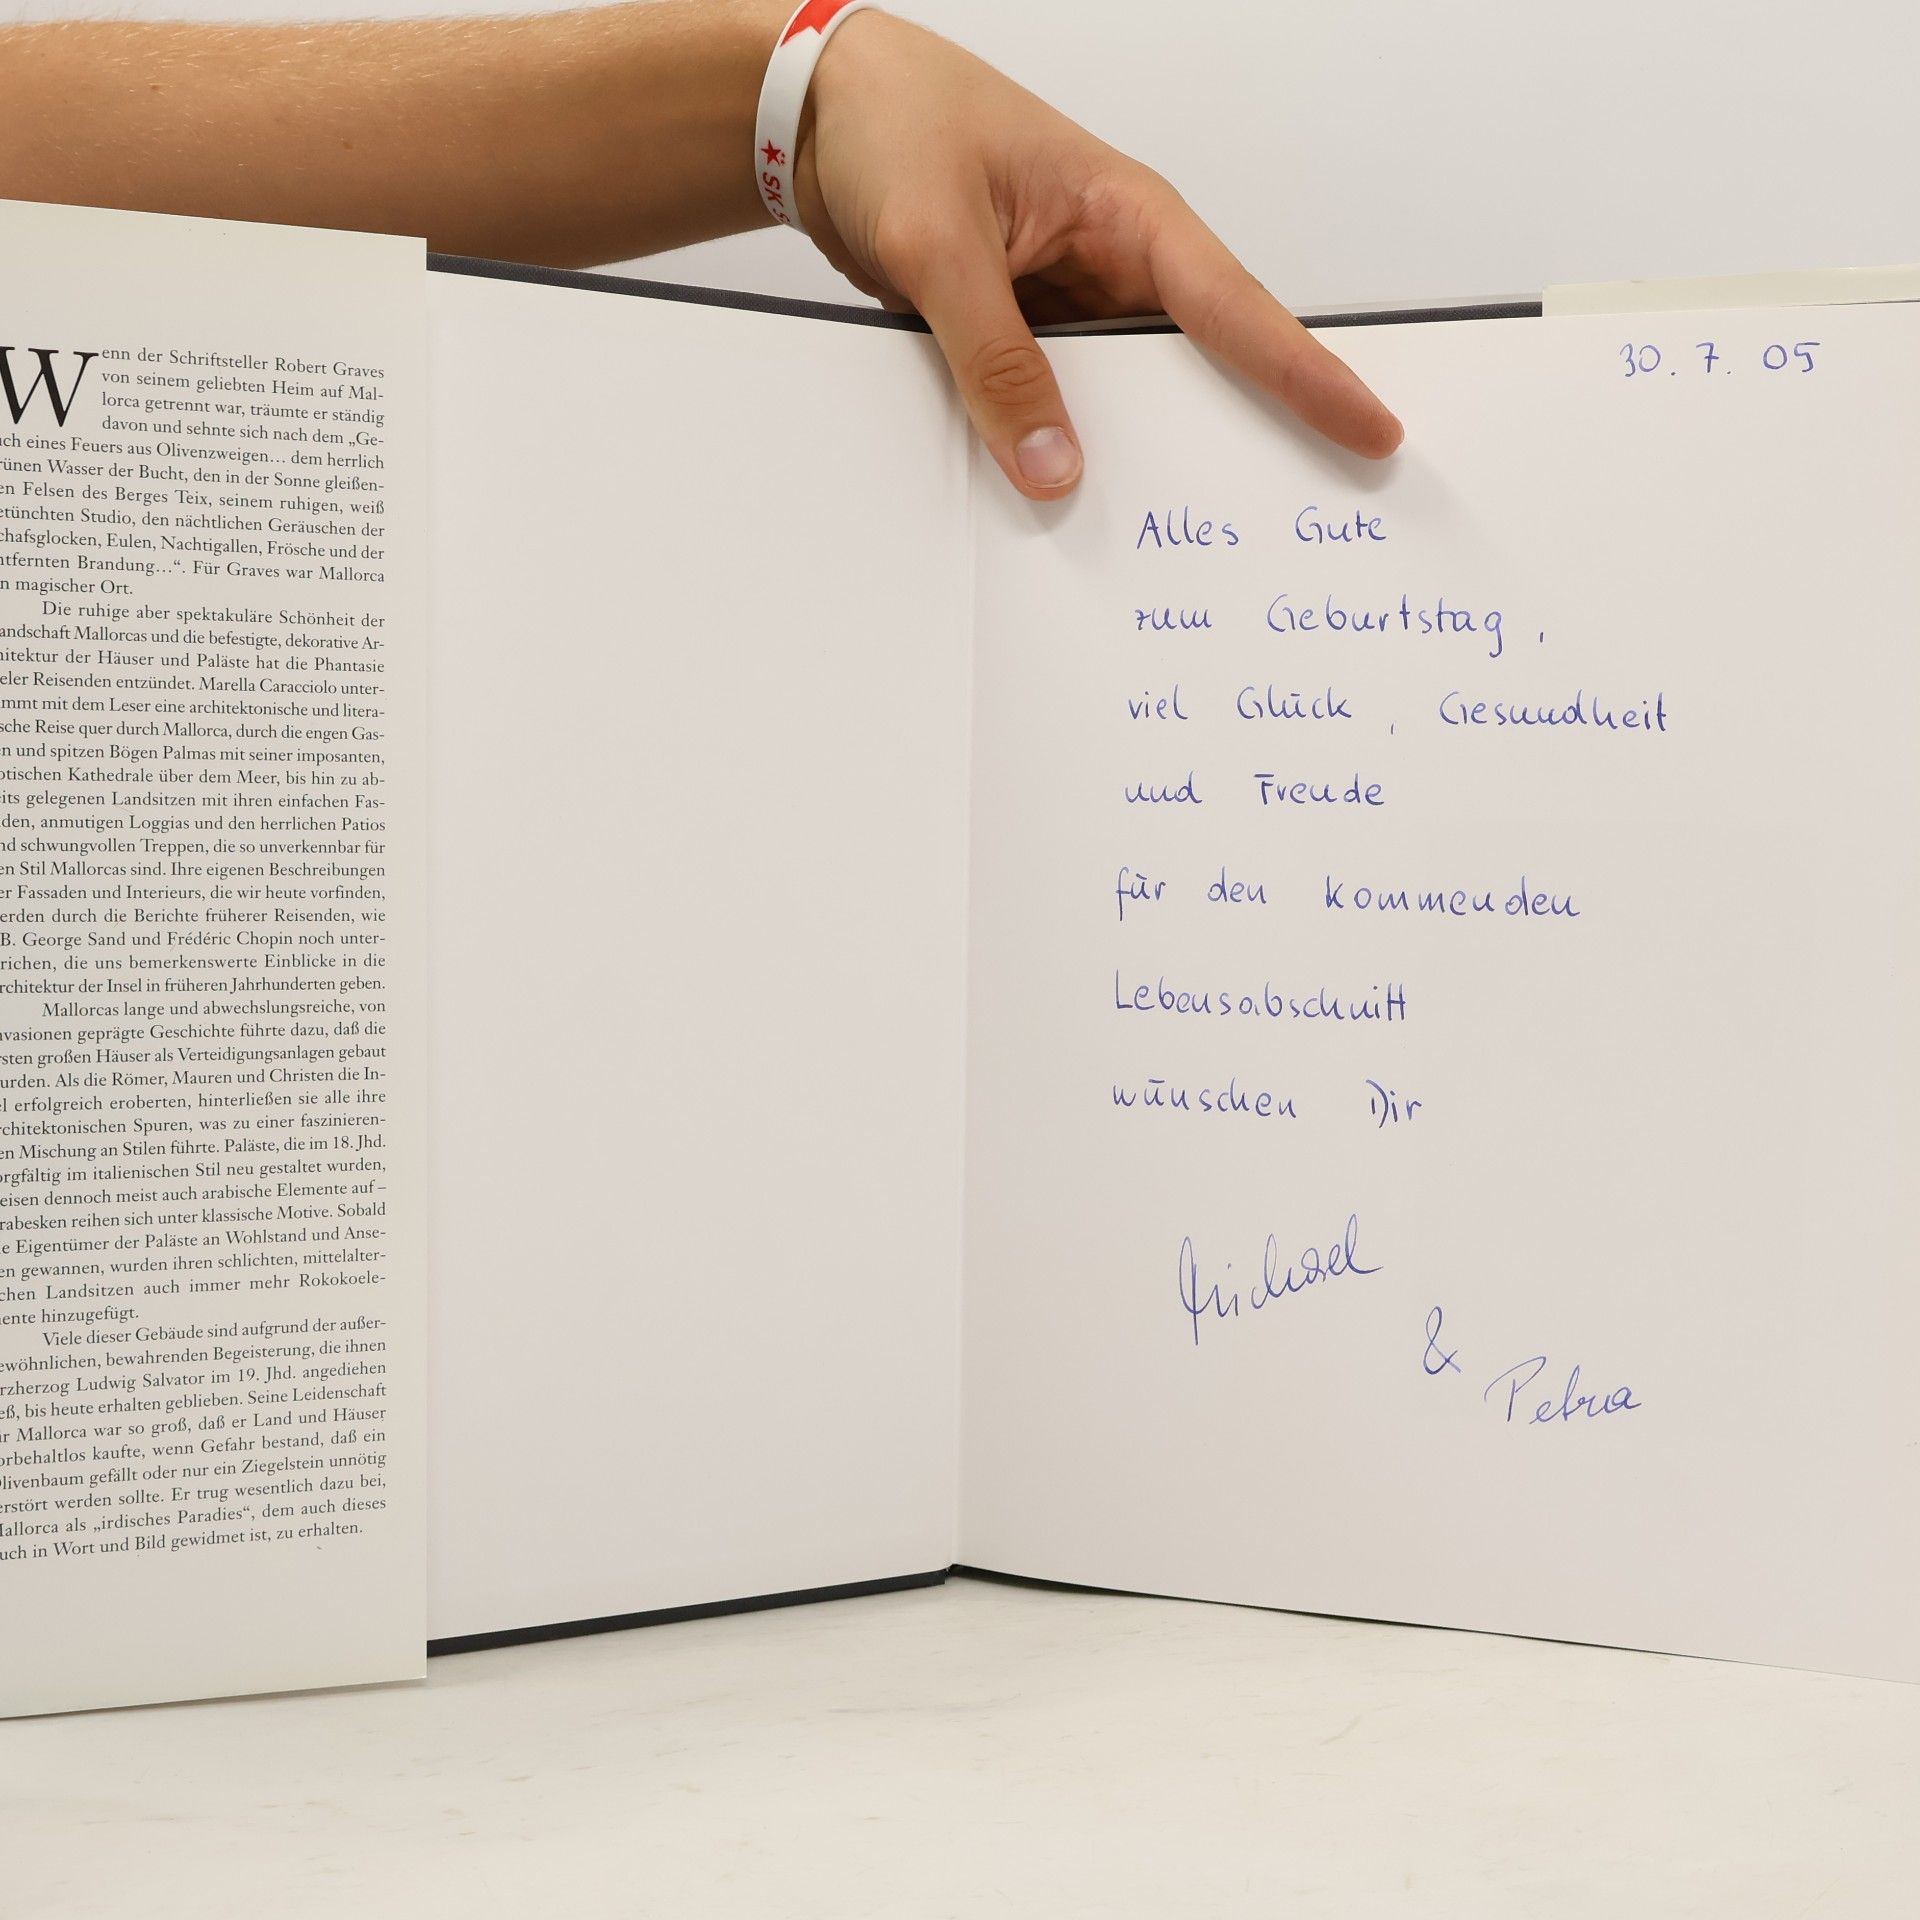 ★ SK S
Wenn der Schriftsteller Robert Graves
von seinem geliebten Heim auf Mal-
lorca getrennt war, träumte er ständig
davon und sehnte sich nach dem „Ge-
uch eines Feuers aus Olivenzweigen… dem herrlich
rünen Wasser der Bucht, den in der Sonne gleißen-
en Felsen des Berges Teix, seinem ruhigen, weiß
etünchten Studio, den nächtlichen Geräuschen der
chafsglocken, Eulen, Nachtigallen, Frösche und der
ntfernten Brandung…“. Für Graves war Mallorca
n magischer Ort.
Die ruhige aber spektakuläre Schönheit der
andschaft Mallorcas und die befestigte, dekorative Ar-
hitektur der Häuser und Paläste hat die Phantasie
eler Reisenden entzündet. Marella Caracciolo unter-
mmt mit dem Leser eine architektonische und litera-
sche Reise quer durch Mallorca, durch die engen Gas-
n und spitzen Bögen Palmas mit seiner imposanten,
otischen Kathedrale über dem Meer, bis hin zu ab-
its gelegenen Landsitzen mit ihren einfachen Fas-
den, anmutigen Loggias und den herrlichen Patios
nd schwungvollen Treppen, die so unverkennbar für
en Stil Mallorcas sind. Ihre eigenen Beschreibungen
er Fassaden und Interieurs, die wir heute vorfinden,
erden durch die Berichte früherer Reisenden, wie
B. George Sand und Frédéric Chopin noch unter-
richen, die uns bemerkenswerte Einblicke in die
rchitektur der Insel in früheren Jahrhunderten geben.
Mallorcas lange und abwechslungsreiche, von
nvasionen geprägte Geschichte führte dazu, daß die
rsten großen Häuser als Verteidigungsanlagen gebaut
urden. Als die Römer, Mauren und Christen die In-
el erfolgreich eroberten, hinterließen sie alle ihre
rchitektonischen Spuren, was zu einer faszinieren-
en Mischung an Stilen führte. Paläste, die im 18. Jhd.
orgfältig im italienischen Stil neu gestaltet wurden,
eisen dennoch meist auch arabische Elemente auf –
rabesken reihen sich unter klassische Motive. Sobald
e Eigentümer der Paläste an Wohlstand und Anse-
en gewannen, wurden ihren schlichten, mittelalter-
chen Landsitzen auch immer mehr Rokokoele-
ente hinzugefügt.
Viele dieser Gebäude sind aufgrund der außer-
ewöhnlichen, bewahrenden Begeisterung, die ihnen
rzherzog Ludwig Salvator im 19. Jhd. angediehen
eß, bis heute erhalten geblieben. Seine Leidenschaft
ür Mallorca war so groß, daß er Land und Häuser
orbehaltlos kaufte, wenn Gefahr bestand, daß ein
Olivenbaum gefällt oder nur ein Ziegelstein unnötig
erstört werden sollte. Er trug wesentlich dazu bei,
Mallorca als „irdisches Paradies“, dem auch dieses
uch in Wort und Bild gewidmet ist, zu erhalten.
30. 7. 05
Alles Gute
zum Geburtstag,
viel Glück, Gesundheit
und Freude
für den kommenden
Lebensabschnitt
wünschen Dir
Michael
&
Petra